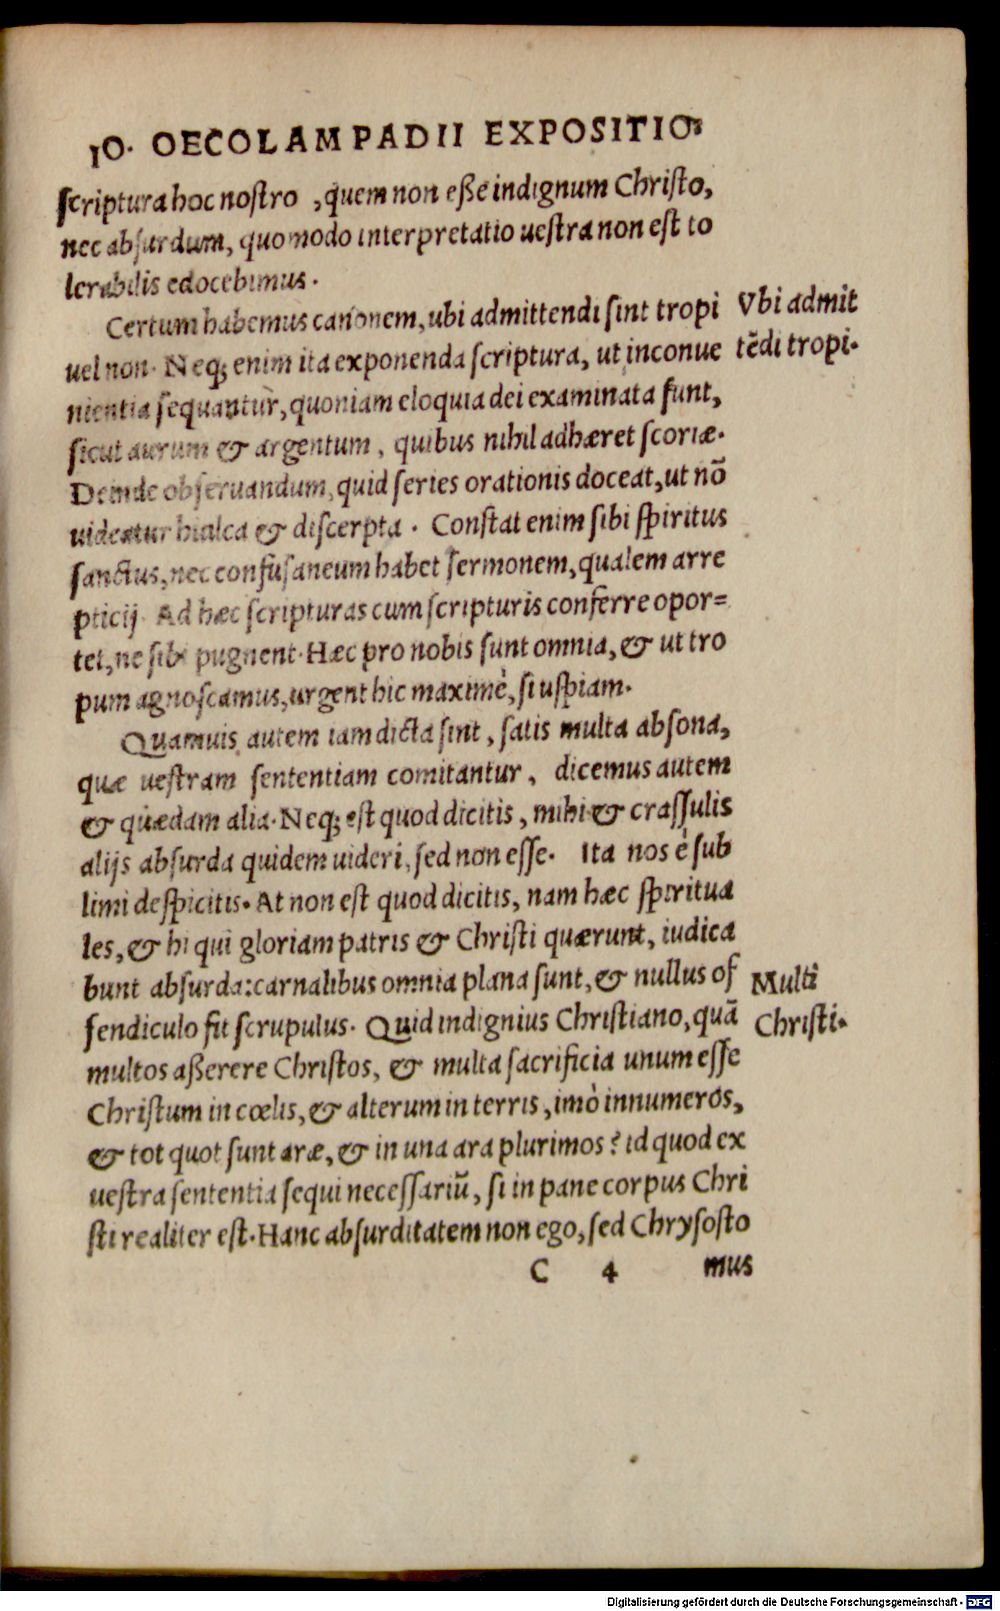 IO. OECOLAMPADII EXPOSITIO
scriptura hoc nostro , quem non eße indignum Christo,
nec absurdum, quomodo interpretatio uestra non est to
lerabilis edocebimus.
Certum habemus canonem, ubi admittendi sint tropi
Vbi admit
uel non. Neq; enim ita exponenda scriptura, ut inconue
tẽdi tropi.
nientia sequantur, quoniam eloquia dei examinata sunt,
sicut aurum & argentum , quibus nihil adhæret scoriæ.
Deinde obseruandum, quid series orationis doceat, ut nõ
uideatur hiulca & discerpta . Constat enim sibi spiritus
sanctus, nec confusaneum habet sermonem, qualem arre
pticij. Ad hæc scripturas cum scripturis conferre opor=
tet, ne sibi pugnent. Hæc pro nobis sunt omnia, & ut tro
pum agnoscamus, urgent hic maximè, si uspiam.
Quamuis autem iam dicta sint , satis multa absona,
quæ uestram sententiam comitantur , dicemus autem
& quædam alia. Neq; est quod dicitis , mihi & crassulis
alijs absurda quidem uideri, sed non esse. Ita nos è sub
limi despicitis. At non est quod dicitis, nam hæc spiritua
les, & hi qui gloriam patris & Christi quærunt, iudica
bunt absurda: carnalibus omnia plana sunt, & nullus of
Multi
fendiculo fit scrupulus. Quid indignius Christiano, quã
Christi.
multos aßerere Christos, & multa sacrificia unum esse
Christum in cœlis, & alterum in terris , imò innumeros,
& tot quot sunt aræ, & in una ara plurimos ? id quod ex
uestra sententia sequi necessariũ , si in pane corpus Chri
sti realiter est. Hanc absurditatem non ego, sed Chrysosto
C 4 mus
Digitalisierung gefördert durch die Deutsche Forschungsgemeinschaft - DFG